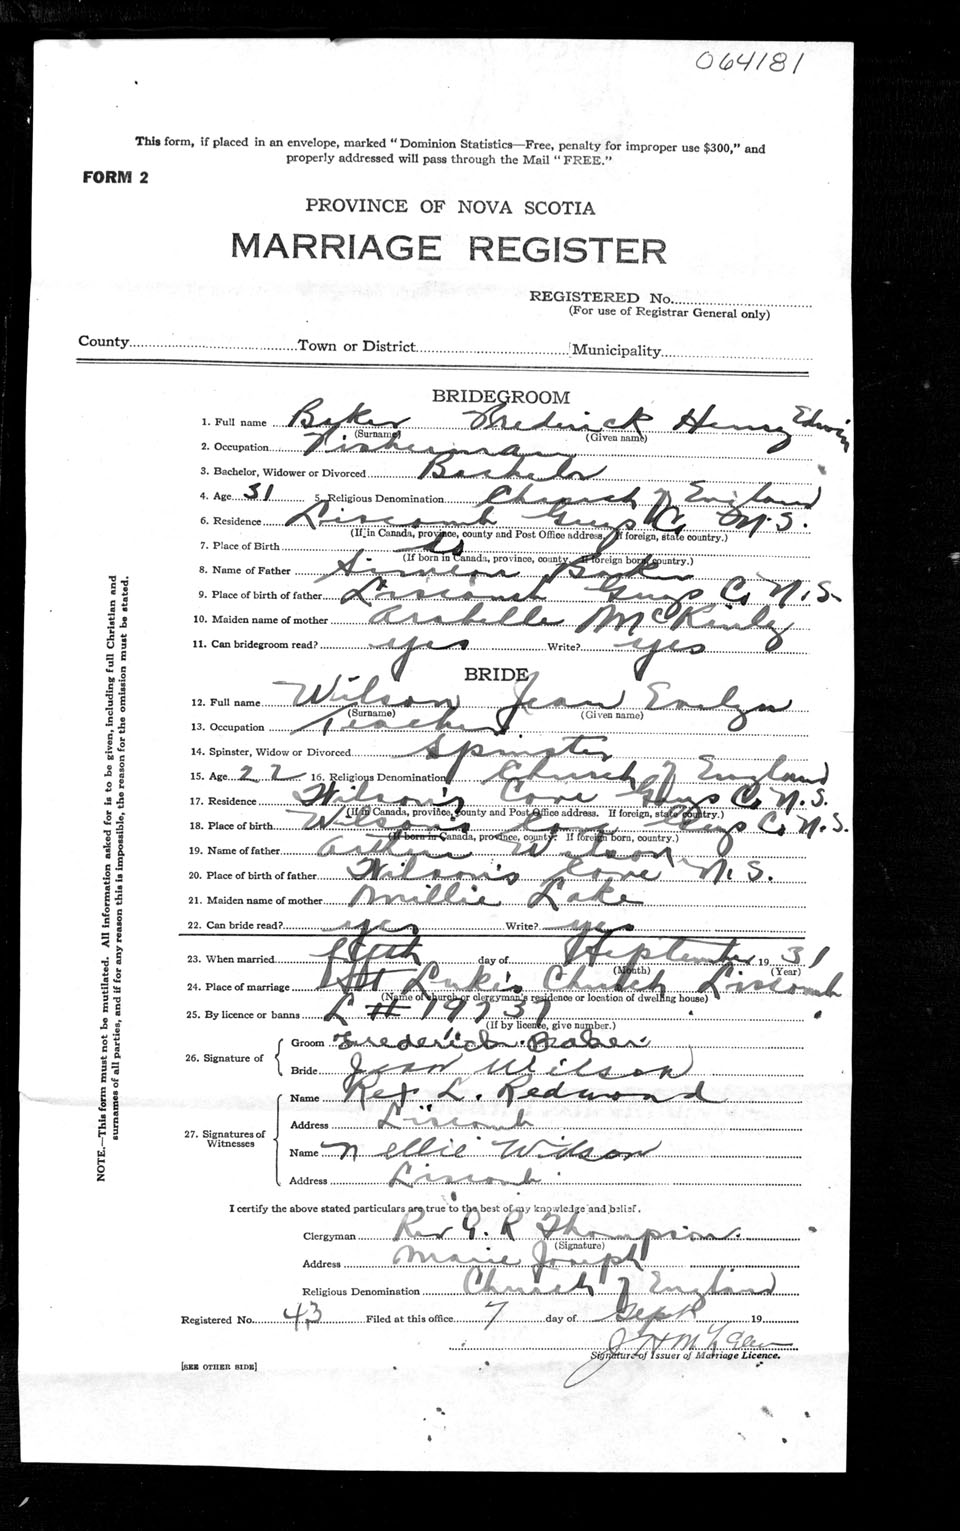 064181
This form, if placed in an envelope, marked "Dominion Statistics—Free, penalty for improper use $300," and
properly addressed will pass through the Mail "FREE."
FORM 2
PROVINCE OF NOVA SCOTIA
MARRIAGE REGISTER
REGISTERED No.
(For use of Registrar General only)
County Town or District Municipality
BRIDEGROOM
1. Full name Baker Frederick Henry Edwin
(Surname) (Given name)
2. Occupation Fisherman
3. Bachelor, Widower or Divorced Bachelor
4. Age 31 5. Religious Denomination Church of England
6. Residence Liscomb Guys Co N.S.
(If in Canada, province, county and Post Office address. If foreign, state country.)
7. Place of Birth do
(If born in Canada, province, county. If foreign born, country.)
8. Name of Father Simeon Baker
9. Place of birth of father Liscomb Guys Co N.S.
10. Maiden name of mother Arabella McKinley
11. Can bridegroom read? yes Write? yes
BRIDE
12. Full name Wilson Jean Evelyn
(Surname) (Given name)
13. Occupation Teacher
14. Spinster, Widow or Divorced Spinster
15. Age 22 16. Religious Denomination Church of England
17. Residence Wilson's Cove Guys Co N.S.
(If in Canada, province, county and Post Office address. If foreign, state country.)
18. Place of birth Wilson's Cove Guys Co N.S.
(If born in Canada, province, county. If foreign born, country.)
19. Name of father Arthur Wilson
20. Place of birth of father Wilson's Cove N.S.
21. Maiden name of mother Millie Lake
22. Can bride read? yes Write? yes
23. When married fifth day of September 1931
(Month) (Year)
24. Place of marriage St Luke's Church Liscomb
(Name of church or clergyman's residence or location of dwelling house)
25. By licence or banns L # 19737
(If by licence, give number.)
26. Signature of
Groom Frederick Baker
Bride Jean Wilson
27. Signatures of
Witnesses
Name Rex L. Redmond
Address Liscomb
Name Nellie Wilson
Address Liscomb
I certify the above stated particulars are true to the best of my knowledge and belief.
Clergyman Rev G. R Thompson
(Signature)
Address Marie Joseph
Religious Denomination Church of England
Registered No. 43 Filed at this office 7 day of Sept 19
Signature of Issuer of Marriage Licence.
[SEE OTHER SIDE]
NOTE.—This form must not be mutilated. All information asked for is to be given, including full Christian and
surnames of all parties, and if for any reason this is impossible, the reason for the omission must be stated.